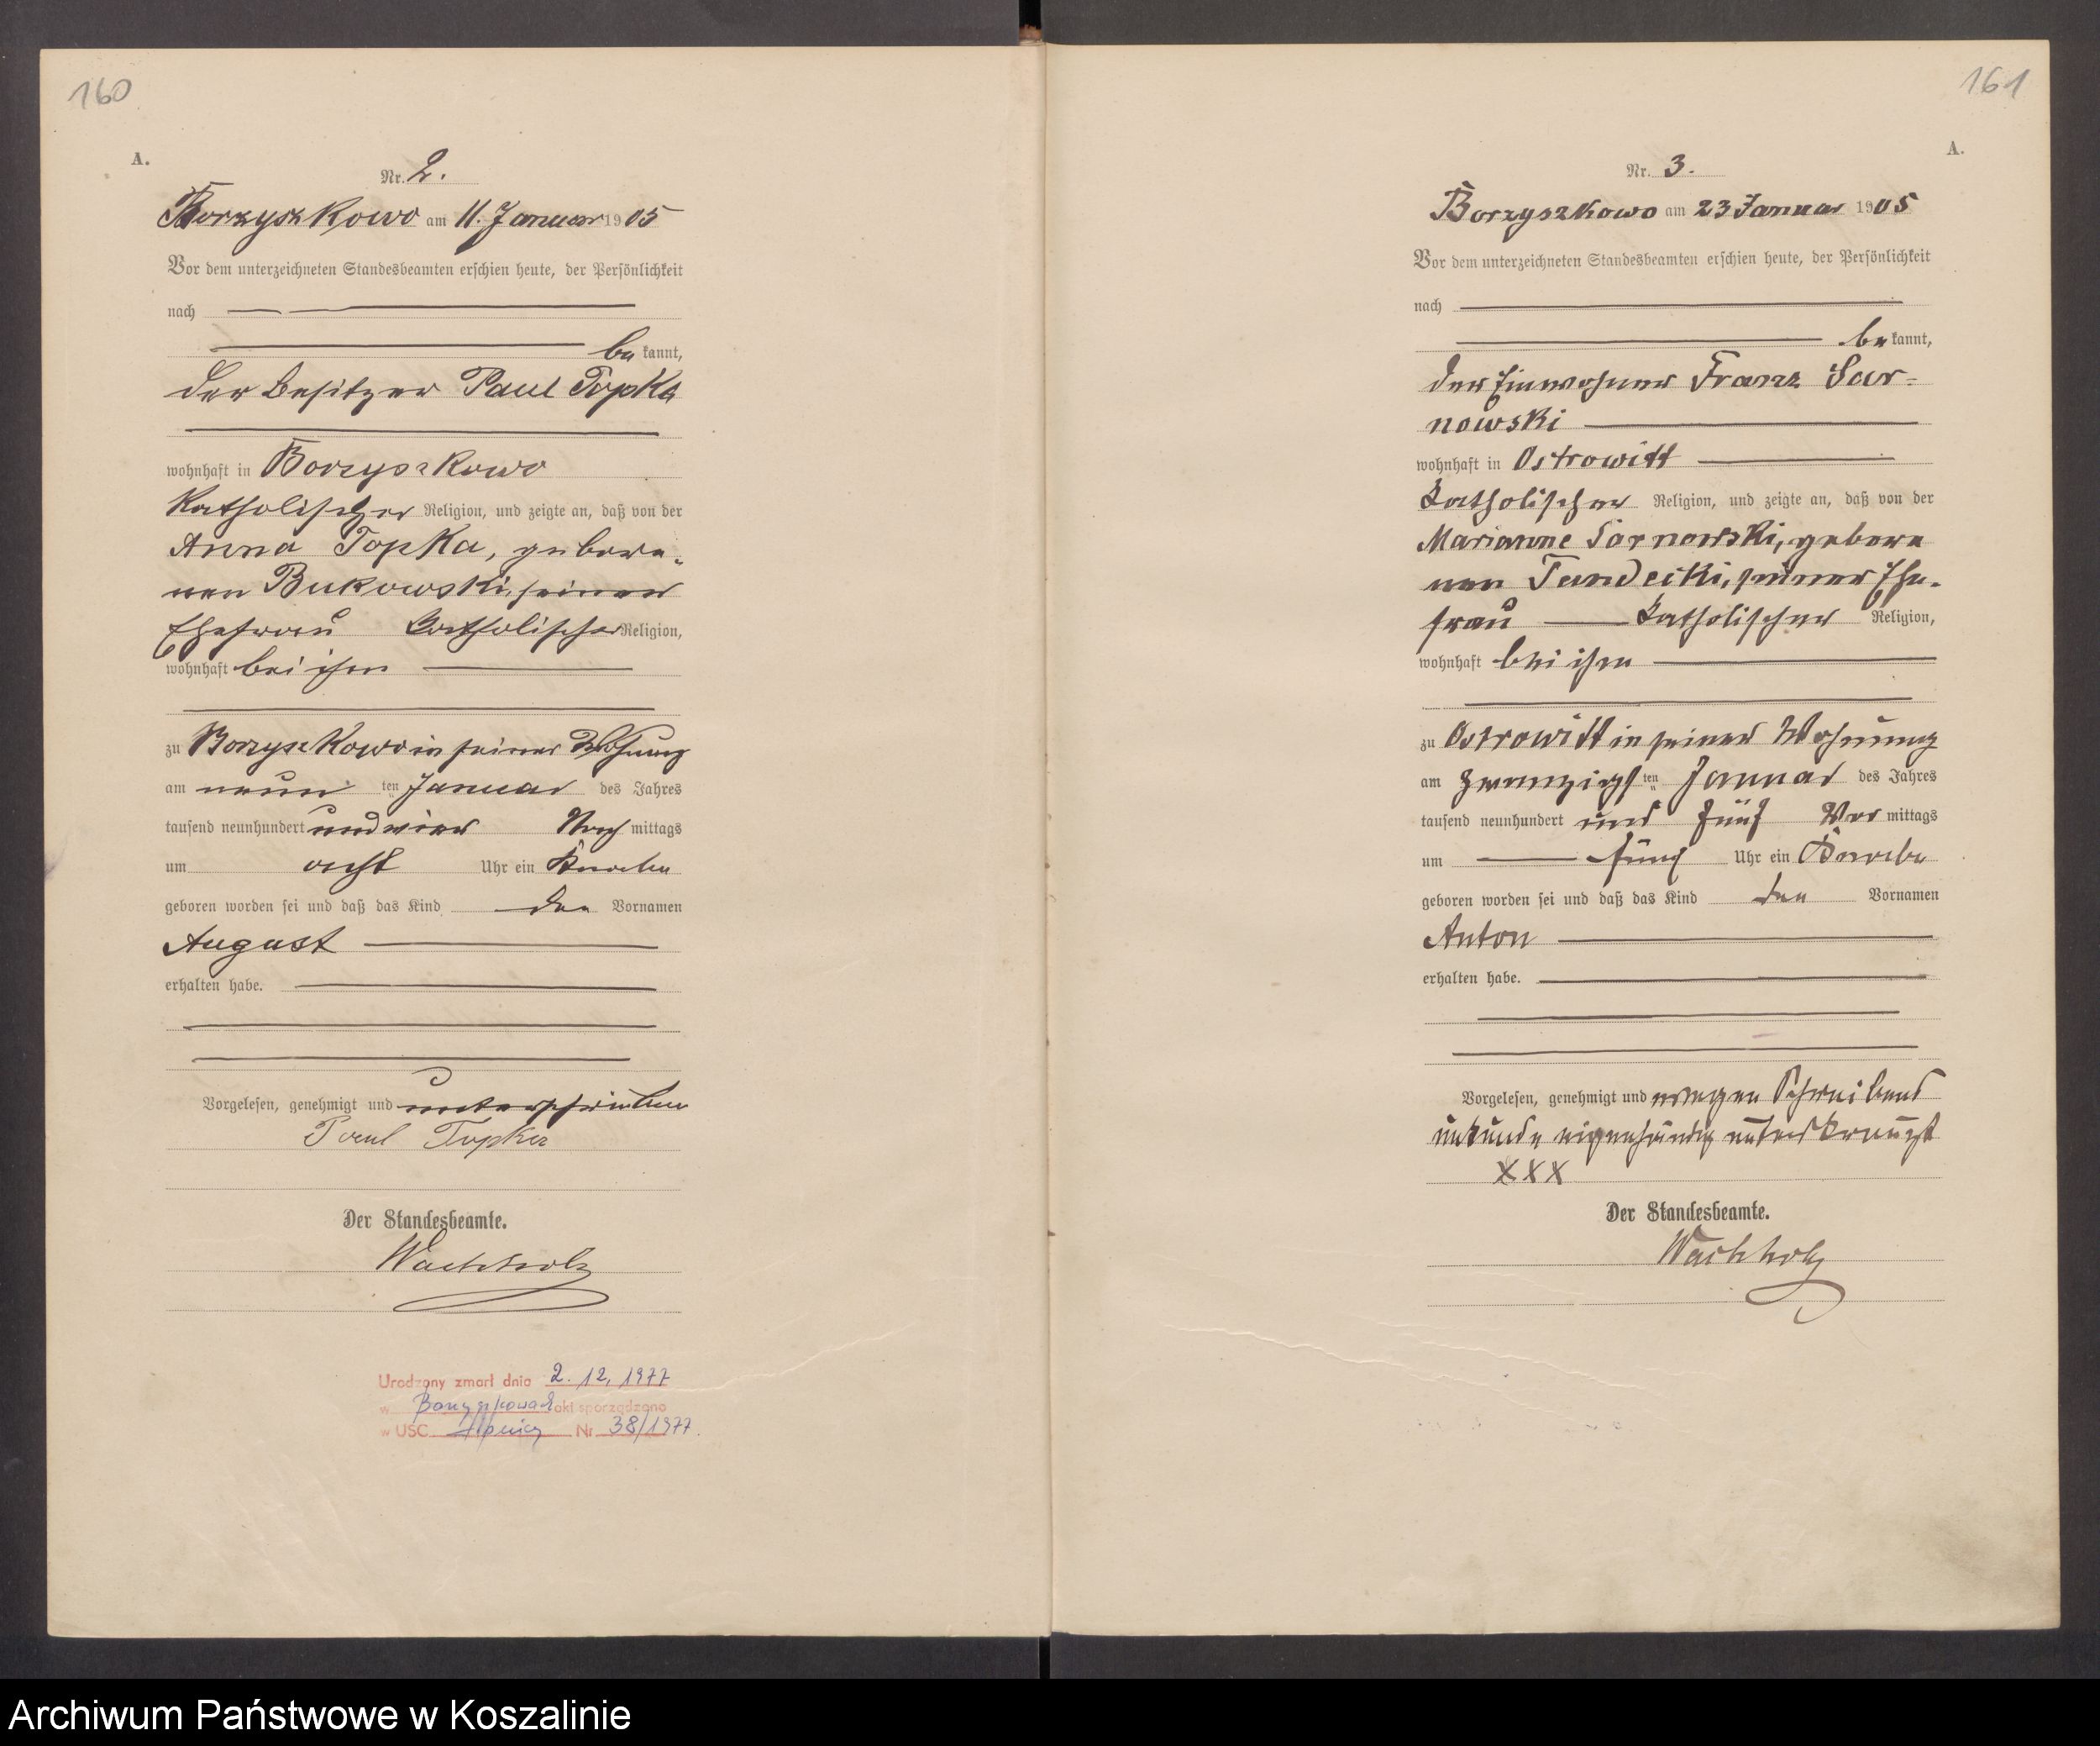 160
A.
Nr. 2.
Borzyszkowo am 11. Januar 1905
Vor dem unterzeichneten Standesbeamten erschien heute, der Persönlichkeit
nach
bekannt,
der Besitzer Paul Topka
wohnhaft in Borzyszkowo
katholischer Religion, und zeigte an, daß von der
Anna Topka, gebore-
nen Bukowski, seiner
Ehefrau katholischer Religion,
wohnhaft bei ihm
zu Borzyszkowo in seiner Wohnung
am neun ten Januar des Jahres
tausend neunhundert und Nachmittags
um acht Uhr ein Knabe
geboren worden sei und daß das Kind den Vornamen
August
erhalten habe.
Vorgelesen, genehmigt und unterschrieben
Paul Topka
Der Standesbeamte.
Wachholz
Urodzony zmarł dnia 2.12.1977
w akt sporządzono
w USC Lipnicy Nr 38/1977.
161
A.
Nr. 3.
Borzyszkowo am 23 Januar 1905
Vor dem unterzeichneten Standesbeamten erschien heute, der Persönlichkeit
nach
bekannt,
der Einwohner Franz Sar-
nowski
wohnhaft in Ostrowitt
katholischer Religion, und zeigte an, daß von der
Marianne Sarnowski, gebore
nen Tandecki, seiner Ehe-
frau katholischer Religion,
wohnhaft bei ihm
zu Ostrowitt in seiner Wohnung
am zwanzigsten Januar des Jahres
tausend neunhundert und fünf Vormittags
um fünf Uhr ein Knabe
geboren worden sei und daß das Kind den Vornamen
Anton
erhalten habe.
Vorgelesen, genehmigt und wegen Schreibens
unkunde eigenhändig unterkreuzt
XXX
Der Standesbeamte.
Wachholz
Archiwum Państwowe w Koszalinie